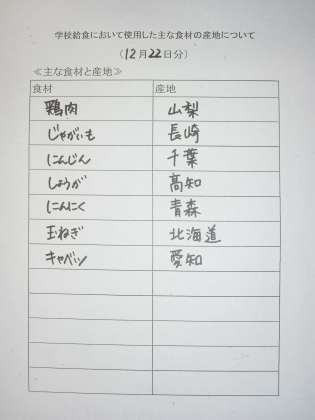 学校給食において使用した主な食材の産地について
（12月22日分）
≪主な食材と産地≫
食材 産地
鶏肉 山梨
じゃがいも 長崎
にんじん 千葉
しょうが 高知
にんにく 青森
玉ねぎ 北海道
キャベツ 愛知